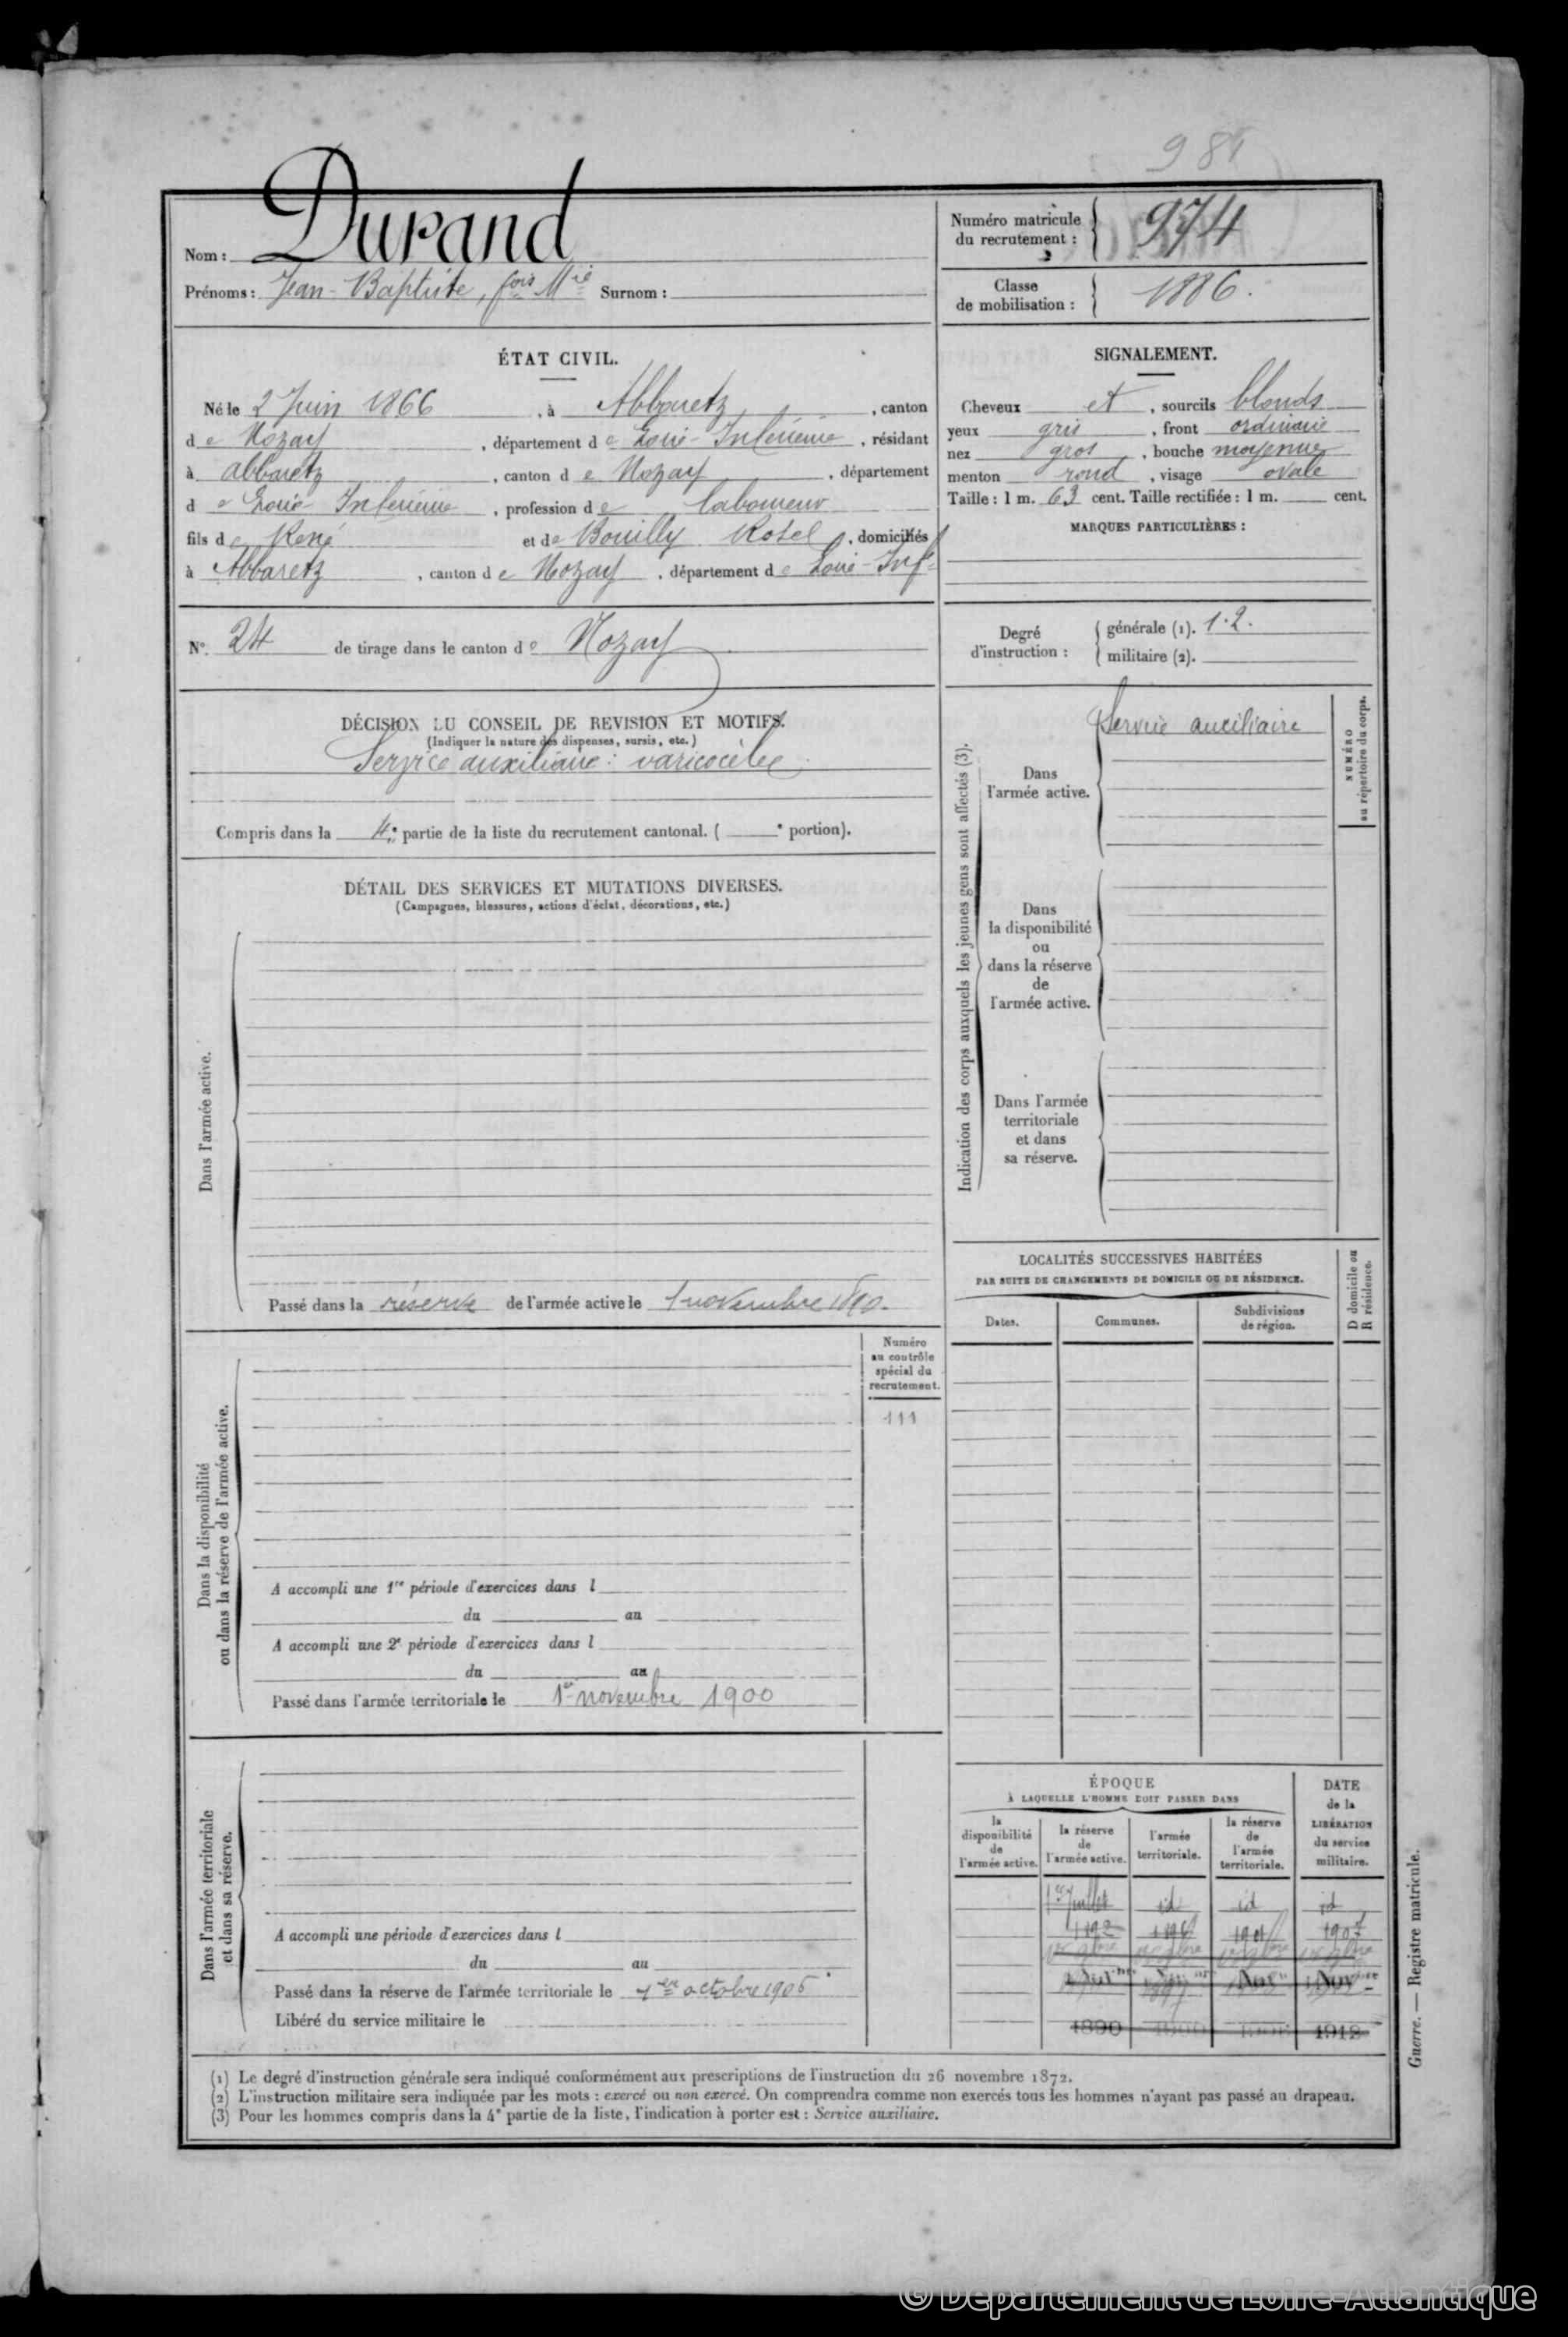 984
Nom : Durand
Prénoms : Jean-Baptiste, fois Mie Surnom :
Numéro matricule
du recrutement : 974
Classe
de mobilisation : 1886.
ÉTAT CIVIL.
Né le 2 Juin 1866, à Abbaretz, canton
de Nozay, département de Loire-Inférieure, résidant
à abbaretz, canton de Nozay, département
de Loire-Inférieure, profession de laboureur
fils de René et de Bouilly Rosel, domiciliés
à Abbaretz, canton de Nozay, département de Loire-Infre
SIGNALEMENT.
Cheveux et, sourcils blonds
yeux gris, front ordinaire
nez gros, bouche moyenne
menton rond, visage ovale
Taille : 1 m. 63 cent. Taille rectifiée : 1 m. cent.
MARQUES PARTICULIÈRES :
N° 24 de tirage dans le canton de Nozay
Degré
d'instruction :
générale (1). 1.2.
militaire (2).
DÉCISION DU CONSEIL DE REVISION ET MOTIFS.
(Indiquer la nature des dispenses, sursis, etc.)
Service auxiliaire : varicocèle
Compris dans la 4e partie de la liste du recrutement cantonal. ( e portion).
DÉTAIL DES SERVICES ET MUTATIONS DIVERSES.
(Campagnes, blessures, actions d'éclat, décorations, etc.)
Dans l'armée active.
Passé dans la réserve de l'armée active le 1 novembre 1890.
Indication des corps auxquels les jeunes gens sont affectés (3).
Dans
l'armée active.
Service auxiliaire
NUMÉRO
au répertoire du corps.
Dans
la disponibilité
ou
dans la réserve
de
l'armée active.
Dans l'armée
territoriale
et dans
sa réserve.
LOCALITÉS SUCCESSIVES HABITÉES
PAR SUITE DE CHANGEMENTS DE DOMICILE OU DE RÉSIDENCE.
Dates.
Communes.
Subdivisions
de région.
D domicile ou
R résidence.
Dans la disponibilité
ou dans la réserve de l'armée active.
Numéro
au contrôle
spécial du
recrutement.
111
A accompli une 1re période d'exercices dans l
du au
A accompli une 2e période d'exercices dans l
du au
Passé dans l'armée territoriale le 1er novembre 1900
Dans l'armée territoriale
et dans sa réserve.
A accompli une période d'exercices dans l
du au
Passé dans la réserve de l'armée territoriale le 1er octobre 1906
Libéré du service militaire le
ÉPOQUE
À LAQUELLE L'HOMME DOIT PASSER DANS
la
disponibilité
de
l'armée active.
la réserve
de
l'armée active.
l'armée
territoriale.
la réserve
de
l'armée
territoriale.
DATE
de la
LIBÉRATION
du service
militaire.
1er Juillet id id id
1907
1890 1912
(1) Le degré d'instruction générale sera indiqué conformément aux prescriptions de l'instruction du 26 novembre 1872.
(2) L'instruction militaire sera indiquée par les mots : exercé ou non exercé. On comprendra comme non exercés tous les hommes n'ayant pas passé au drapeau.
(3) Pour les hommes compris dans la 4e partie de la liste, l'indication à porter est : Service auxiliaire.
Guerre. — Registre matricule.
© Département de Loire-Atlantique